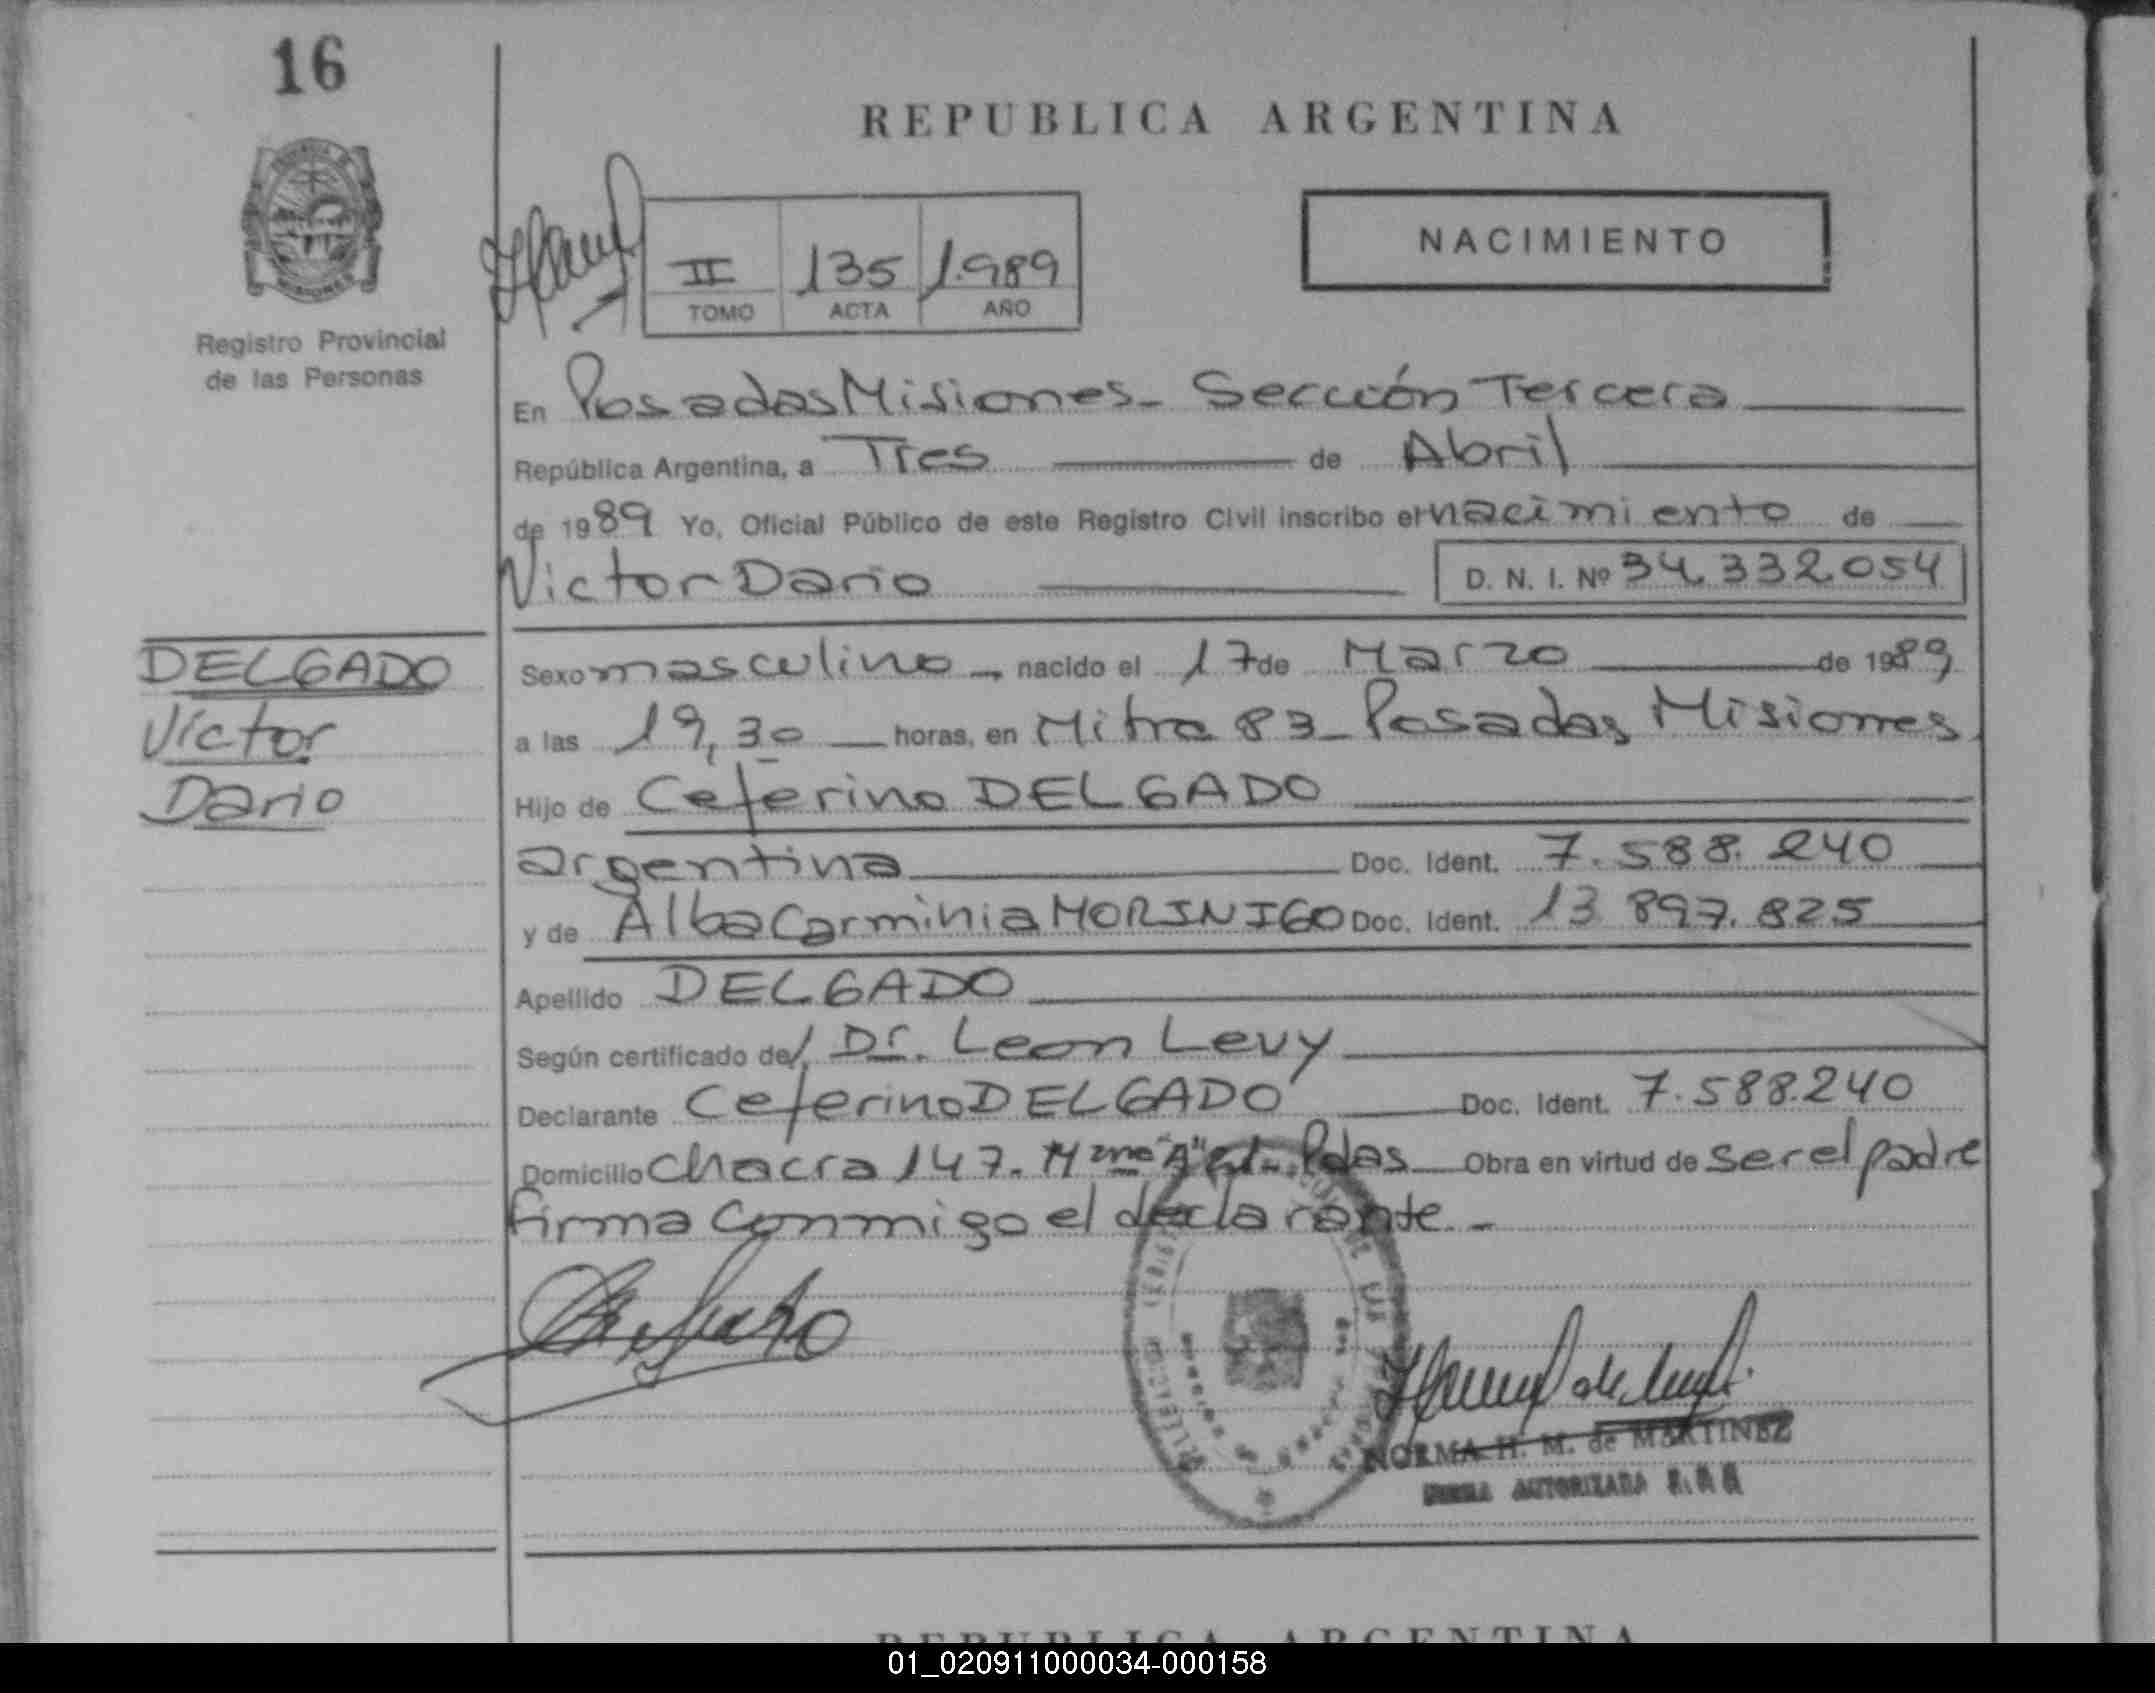 16
REPUBLICA ARGENTINA
NACIMIENTO
II 135 1.989
TOMO ACTA AÑO
Registro Provincial
de las Personas
En Posadas Misiones - Sección Tercera
República Argentina, a Tres de Abril
de 1989 Yo, Oficial Público de este Registro Civil inscribo el nacimiento de
Victor Dario D. N. I. Nº 34.332.054
DELGADO
Victor
Dario
Sexo masculino, nacido el 17 de Marzo de 1989
a las 19,30 horas, en Mitra 83 - Posadas Misiones
Hijo de Ceferino DELGADO
argentina Doc. Ident. 7.588.240
y de Alba Carminia MORINIGO Doc. Ident. 13 897.825
Apellido DELGADO
Según certificado del Dr. Leon Levy
Declarante Ceferino DELGADO Doc. Ident. 7.588.240
Domicilio Chacra 147. Pdas Obra en virtud de ser el padre
firma conmigo el declarante.-
NORMA H. M. de MARTINEZ
AUTORIZADA
REPUBLICA ARGENTINA
01_020911000034-000158